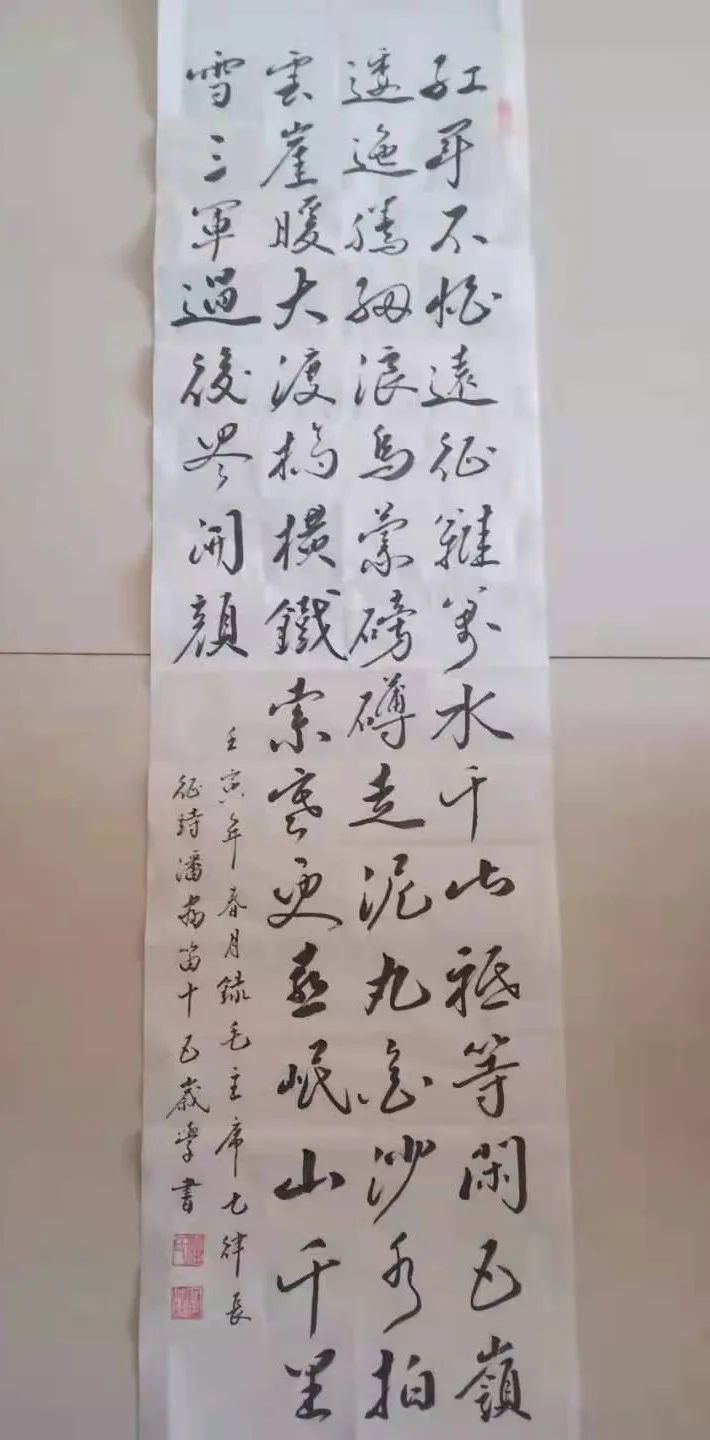 紅軍不怕遠征難萬水千山祇等閑五嶺
逶迤騰細浪烏蒙磅礴走泥丸金沙水拍
雲崖暖大渡橋橫鐵索寒更喜岷山千里
雪三軍過後盡開顏
壬寅年春月錄毛主席七律長
征詩潘十五歲學書